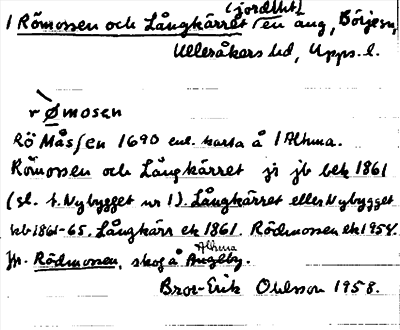 1 Römossen och Långkärret (jordbit) en äng, Börje sn,
Ulleråkers hd, Upps. l.
rømosen
Rö Måssen 1690 enl. karta å 1 Altuna.
Römossen och Långkärret ji jb bek 1861
(sl. f. Nybygget nr 1). Långkärret eller Nybygget
kb 1861-65. Långkärr ek 1861. Rödmossen ek 1954.
Jfr. Rödmossen, skog å Altuna
Bror-Erik Ohlsson 1958.